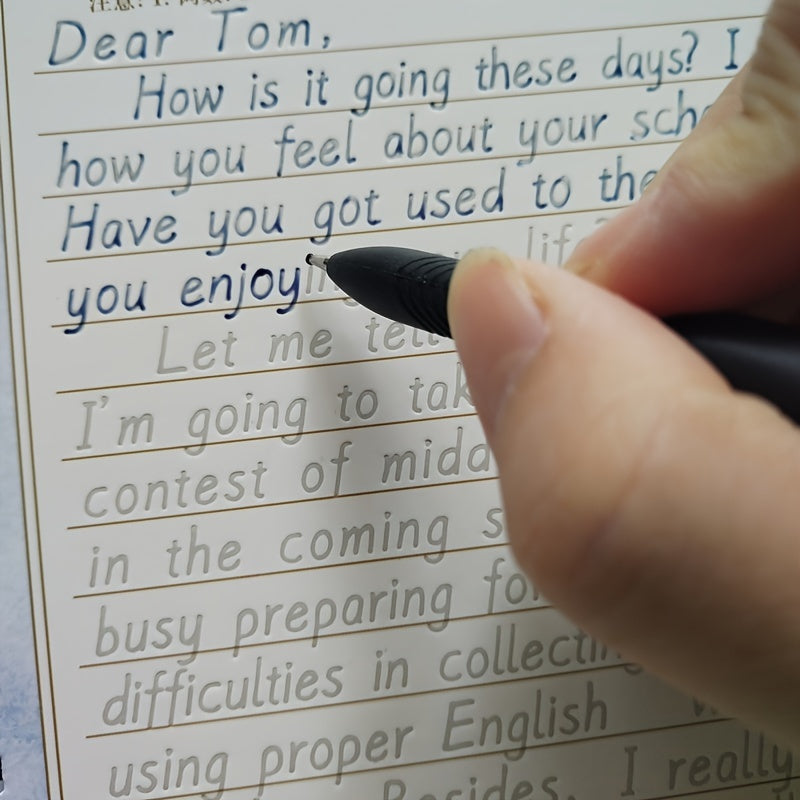 Dear Tom,
How is it going these days? I
how you feel about your
Have you got used to the
you enjoying life?
Let me tell
I'm going to
contest of
in the coming
busy preparing for
difficulties in collecting
using proper English
Besides, I really